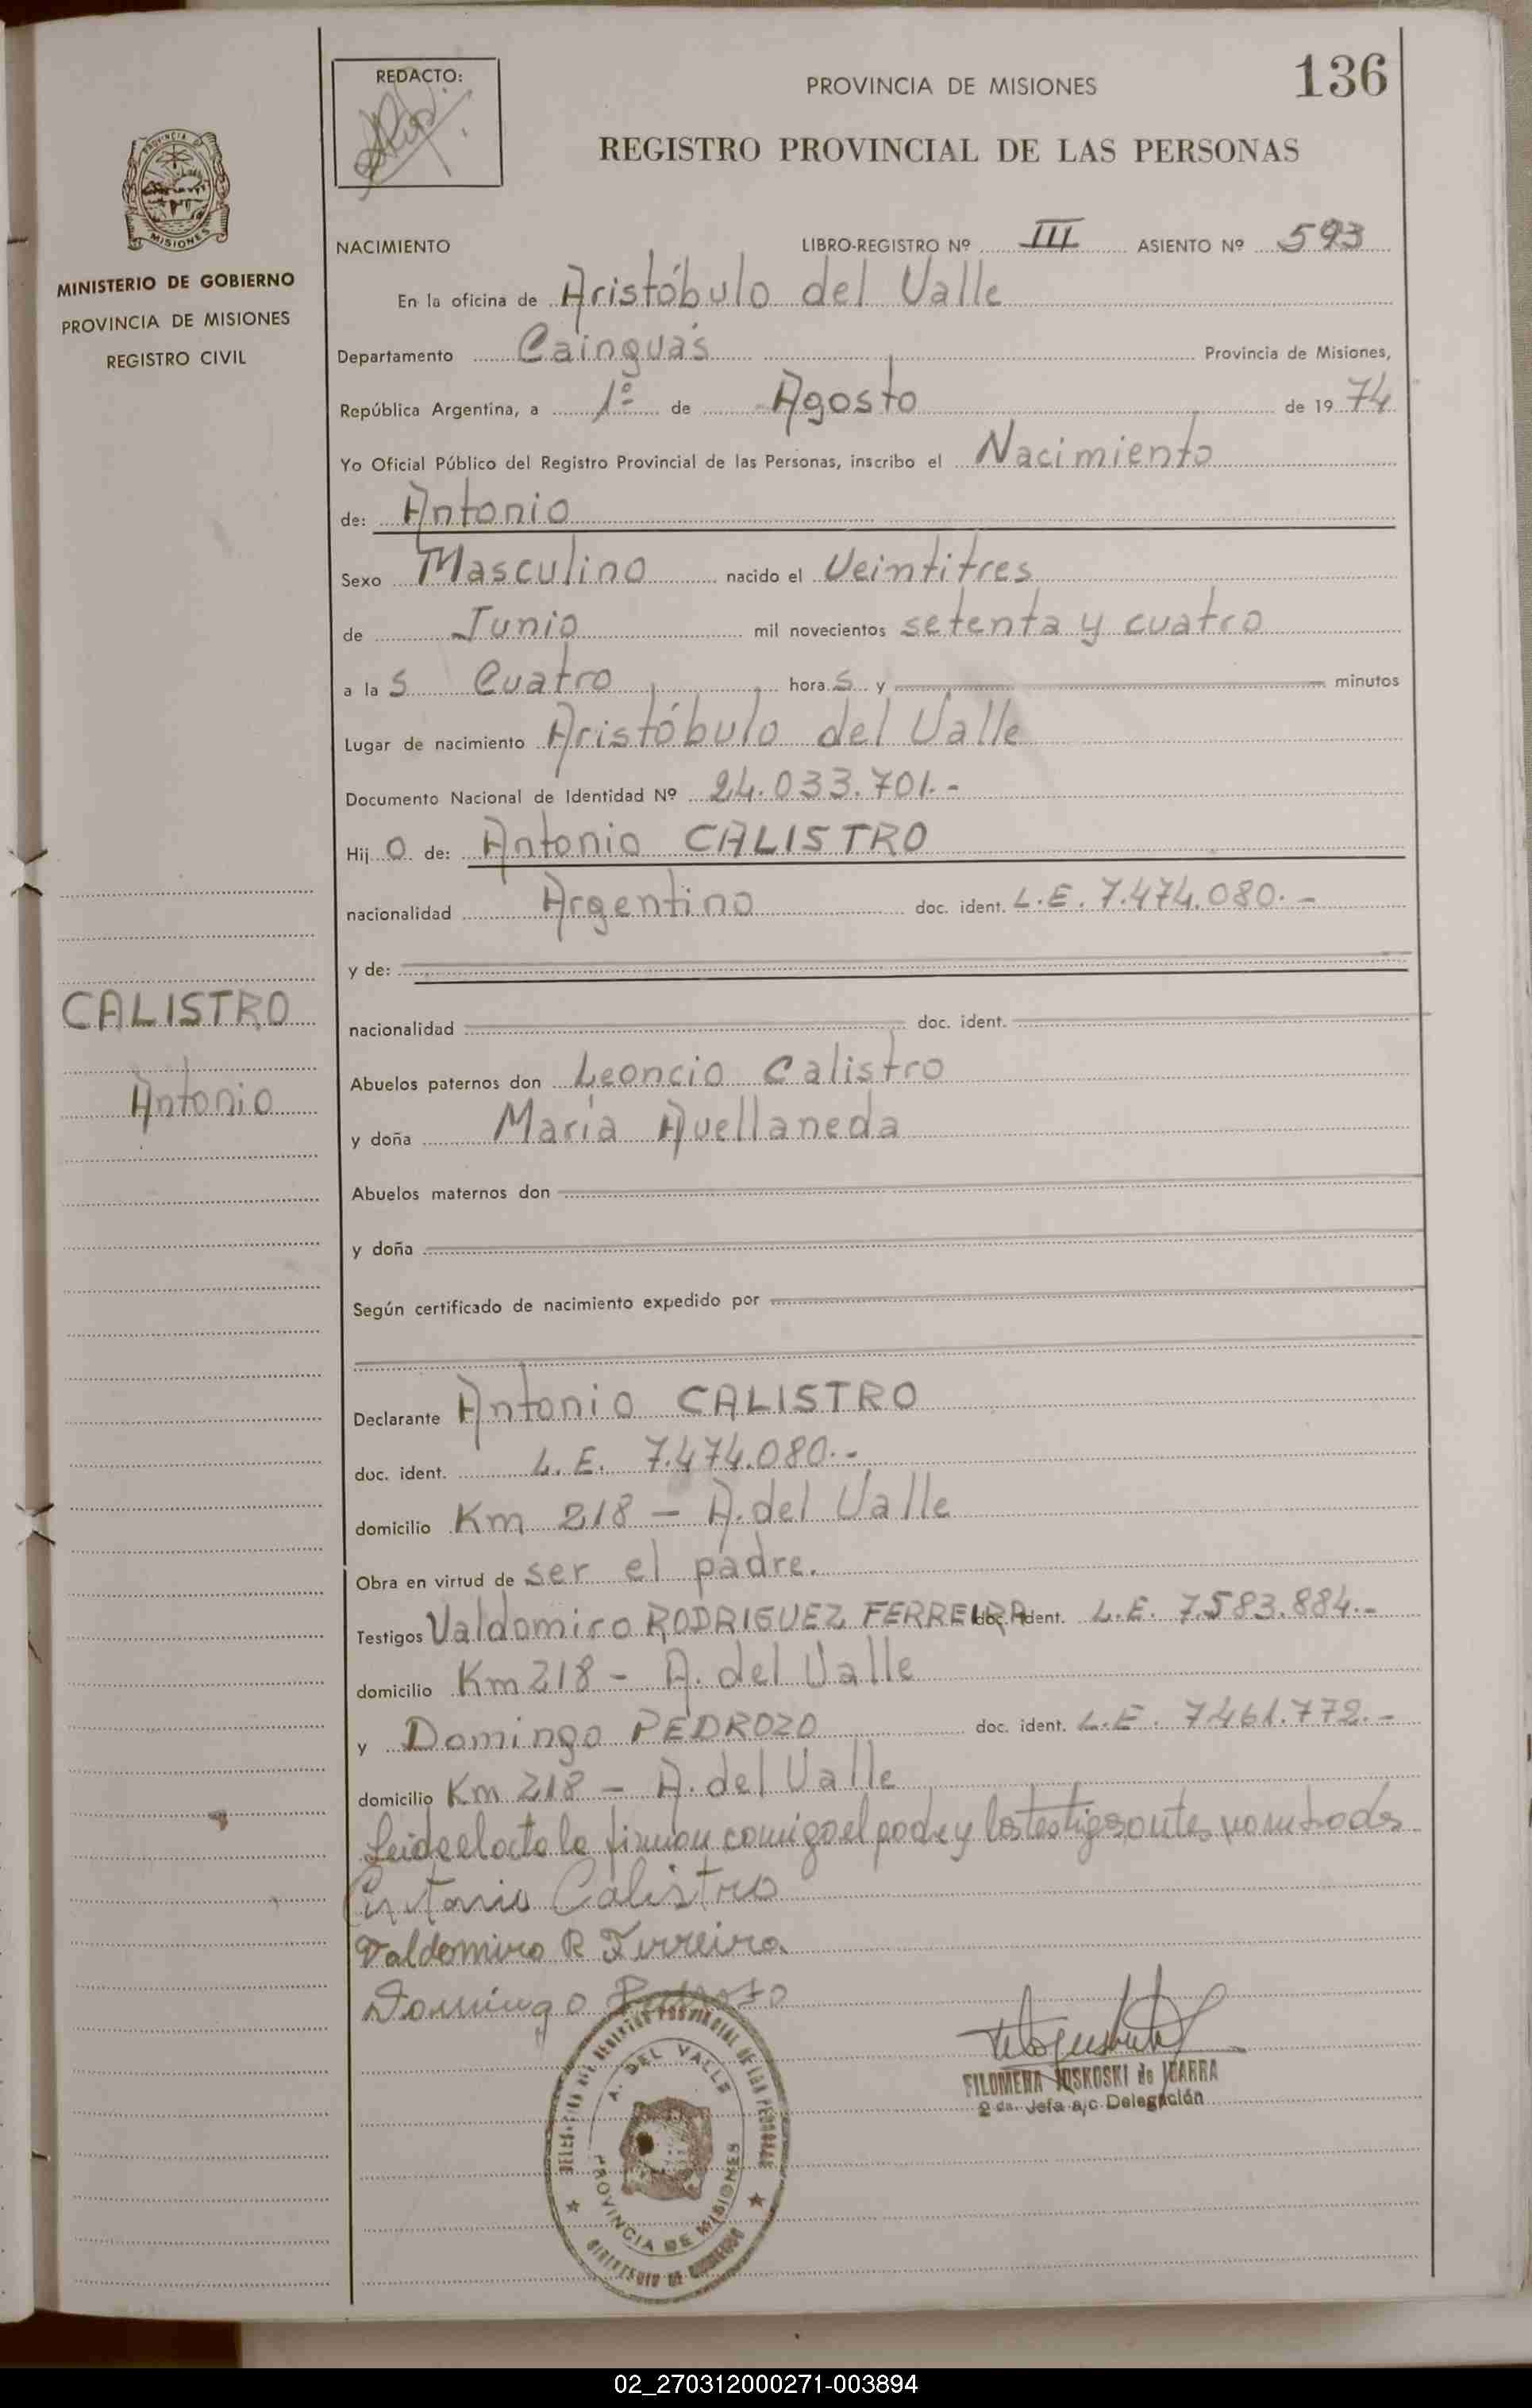 136
REDACTO:
PROVINCIA DE MISIONES
REGISTRO PROVINCIAL DE LAS PERSONAS
PROVINCIA DE
MISIONES
MINISTERIO DE GOBIERNO
PROVINCIA DE MISIONES
REGISTRO CIVIL
NACIMIENTO LIBRO-REGISTRO Nº III ASIENTO Nº 593
En la oficina de Aristóbulo del Valle
Departamento Cainguás Provincia de Misiones,
República Argentina, a 1º de Agosto de 1974
Yo Oficial Público del Registro Provincial de las Personas, inscribo el Nacimiento
de: Antonio
Sexo Masculino nacido el Veintitres
de Junio mil novecientos setenta y cuatro
a la s Cuatro hora s y minutos
Lugar de nacimiento Aristóbulo del Valle
Documento Nacional de Identidad Nº 24.033.701.-
Hij o de: Antonio CALISTRO
nacionalidad Argentino doc. ident. L.E. 7.474.080.-
y de:
CALISTRO
Antonio
nacionalidad doc. ident.
Abuelos paternos don Leoncio Calistro
y doña María Avellaneda
Abuelos maternos don
y doña
Según certificado de nacimiento expedido por
Declarante Antonio CALISTRO
doc. ident. L.E. 7.474.080.-
domicilio Km 218 - A. del Valle
Obra en virtud de ser el padre.
Testigos Valdomiro RODRIGUEZ FERREIRA doc. ident. L.E. 7.583.884.-
domicilio Km 218 - A. del Valle
y Domingo PEDROZO doc. ident. L.E. 7.461.772.-
domicilio Km 218 - A. del Valle
Leido el acta la firman conmigo el padre y los testigos antes nombrados
Antonio Calistro
Valdomiro R Ferreira
Domingo Pedrozo
FILOMENA JOSKOSKI de IBARRA
2 da. Jefa a/c Delegación
DELEGACION DEL REGISTRO PROVINCIAL DE LAS PERSONAS
A. DEL VALLE
PROVINCIA DE MISIONES
MINISTERIO DE GOBIERNO
02_270312000271-003894